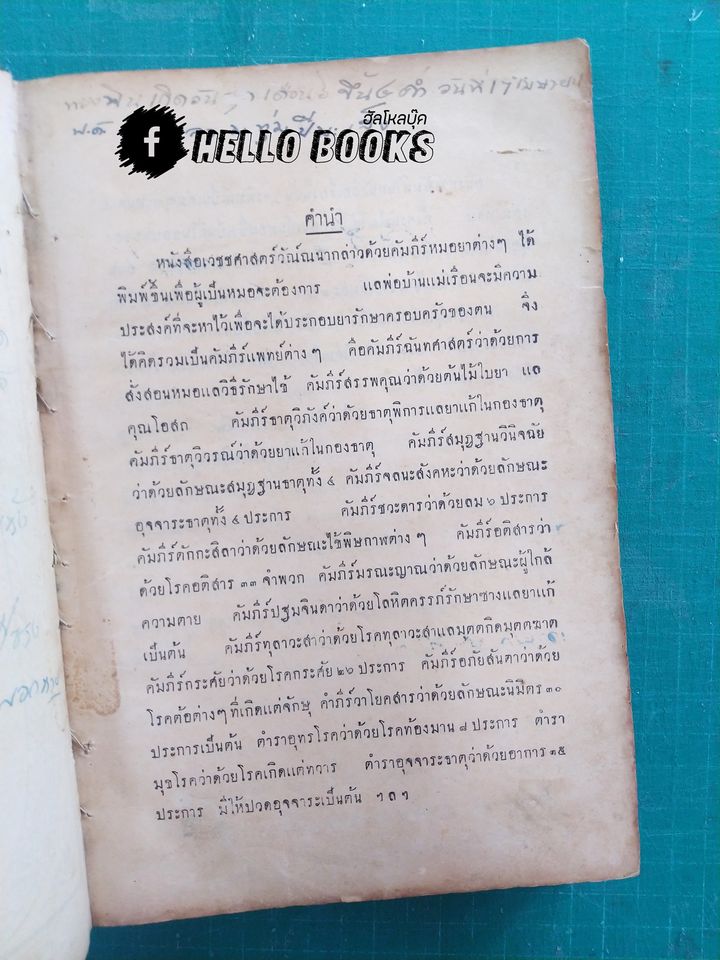 วันที่ ๑๗ เมษายน
พ.ศ.
ฮัลโหลบุ๊ค
f HELLO BOOKS
คำนำ
หนังสือเวชชศาสตร์วัณ์ณนากล่าวด้วยคัมภีร์หมอยาต่างๆ ได้
พิมพ์ขึ้นเพื่อผู้เป็นหมอจะต้องการ แลพ่อบ้านแม่เรือนจะมีความ
ประสงค์ที่จะหาไว้เพื่อจะได้ประกอบยารักษาครอบครัวของตน จึ่ง
ได้คิดรวมเป็นคัมภีร์แพทย์ต่างๆ คือคัมภีร์ฉันทศาสตร์ว่าด้วยการ
สั่งสอนหมอแลวิธีรักษาไข้ คัมภีร์สรรพคุณว่าด้วยต้นไม้ใบยา แล
คุณโอสถ คัมภีร์ธาตุวิภังค์ว่าด้วยธาตุพิการแลยาแก้ในกองธาตุ
คัมภีร์ธาตุวิวรณ์ว่าด้วยยาแก้ในกองธาตุ คัมภีร์สมุฏฐานวินิจฉัย
ว่าด้วยลักษณะสมุฏฐานธาตุทั้ง ๔ คัมภีร์จลนะสังคหะว่าด้วยลักษณะ
อุจจาระธาตุทั้ง ๔ ประการ คัมภีร์ชวะดารว่าด้วยลม ๖ ประการ
คัมภีร์ตักกะสิลาว่าด้วยลักษณะไข้พิษกาฬต่างๆ คัมภีร์อติสารว่า
ด้วยโรคอติสาร ๓๓ จำพวก คัมภีร์มรณะญาณว่าด้วยลักษณะผู้ใกล้
ความตาย คัมภีร์ปฐมจินดาว่าด้วยโลหิตครรภ์รักษาซางแลยาแก้
เป็นต้น คัมภีร์ทุลาวะสาว่าด้วยโรคทุลาวะสาแลมุตตกิดมุตตฆาต
คัมภีร์กระษัยว่าด้วยโรคกระษัย ๒๖ ประการ คัมภีร์อภัยสันตาว่าด้วย
โรคต้อต่างๆ ที่เกิดแต่จักษุ คำภีร์วาโยคสารว่าด้วยลักษณะนิมิตร ๓๐
ประการเป็นต้น ตำราอุทรโรคว่าด้วยโรคท้องมาน ๘ ประการ ตำรา
มุขโรคว่าด้วยโรคเกิดแต่ทวาร ตำราอุจจาระธาตุว่าด้วยอาการ ๑๕
ประการ มีให้ปวดอุจจาระเป็นต้น ฯลฯ